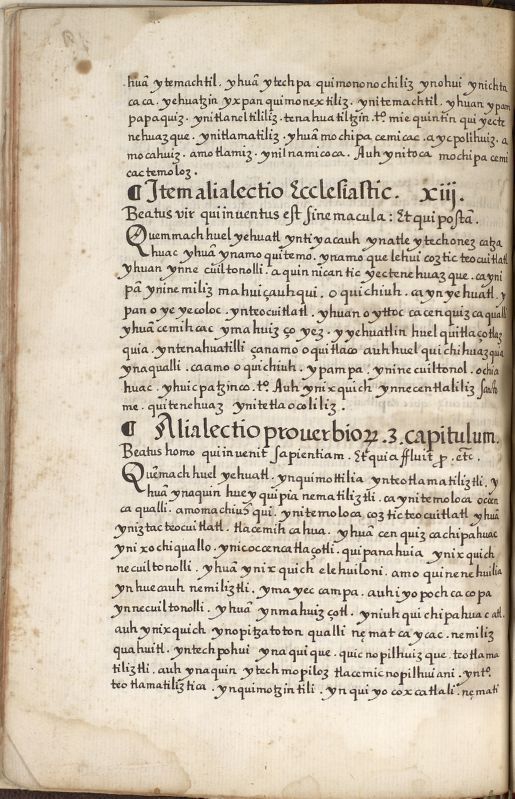 huā ytemachtil . yhuā ytechpa quimononochiliz ynohui ynichta
caca . yehuatzin yxpan quimonextiliz . ynitemachtil . yhuan ypam
papaquiz . ynitlaneltililiz . tenahuatiltzin . tº. miequintin qui yecte
nehuazque . ynitlamatiliz . yhuā mochipa cemicac . aycpolihuiz . a
mocahuiz . amotlamiz . ynilnamicoca . Auh ynitoca mochipa cemi
cactemoloz .
¶ Item alia lectio Ecclesiastic . xiij .
Beatus vir qui inuentus est sine macula : Et qui post ā .
Quemmach huel yehuatl yntiyacauh ynatle ytechonez catza
huac yhuā ynamo quitemo . ynamo quelehui coztic teocuitlatl
yhuan ynne cuiltonolli . aquin nican tic yectenehuazque . cayni
pā yninemiliz mahuiçauhqui . oquichiuh . ca yn yehuatl . y
pan oyeyecoloc . ynteocuitlatl . yhuan oyttoc cacenquizcaqualli
yhuā cemihcac ymahuizço yez . yyehuatlin huel quitlaçotlaz
quia . yntenahuatilli çanamo oquitlaco auh huel quichihuazquia
ynaqualli . caamo oquichiuh . ypampa . ynine cuiltonol . ochia
huac . yhuicpatzinco . tº. Auh ynixquich ynnecentlaliliz
me . quitenehuaz ynitetlaocoliliz .
¶ Alia lectio prouerbioꝝ . 3 . capitulum .
Beatus homo qui inuenit sapientiam . Et quia affluit p . etc .
Quēmach huel yehuatl . ynquimottilia ynteotlamatiliztli . y
huā ynaquin huey quipia nematiliztli . ca ynitemoloca occen
ca qualli . amomachiuhqui . ynitemoloca coztic teocuitlatl yhuā
yniztac teocuitlatl . tlacemihcahua . yhuā cenquizcachipahuac
ynixochiquallo . ynicoccencatlaçotli . quipanahuia ynixquich
necuiltonolli . yhuā ynixquich elehuiloni . amo quinenehuilia
ynhuecauh nemiliztli . ymayeccampa . auh iyopochcacopa
ynnecuiltonolli . yhuā ynmahuizçotl . yniuhqui chipahuacatl .
auh ynixquich ynopitzatoton qualli nematcaycac . nemiliz
quahuitl . yntechpohui ynaquique . quicnopilhuizque . teotlama
tiliztli . auh ynaquin ytechmopiloz tlacemicnopilhuiani . yntº.
teotlamatiliztica . ynquimotzintili . ynquiyocoxcatlali . nemati